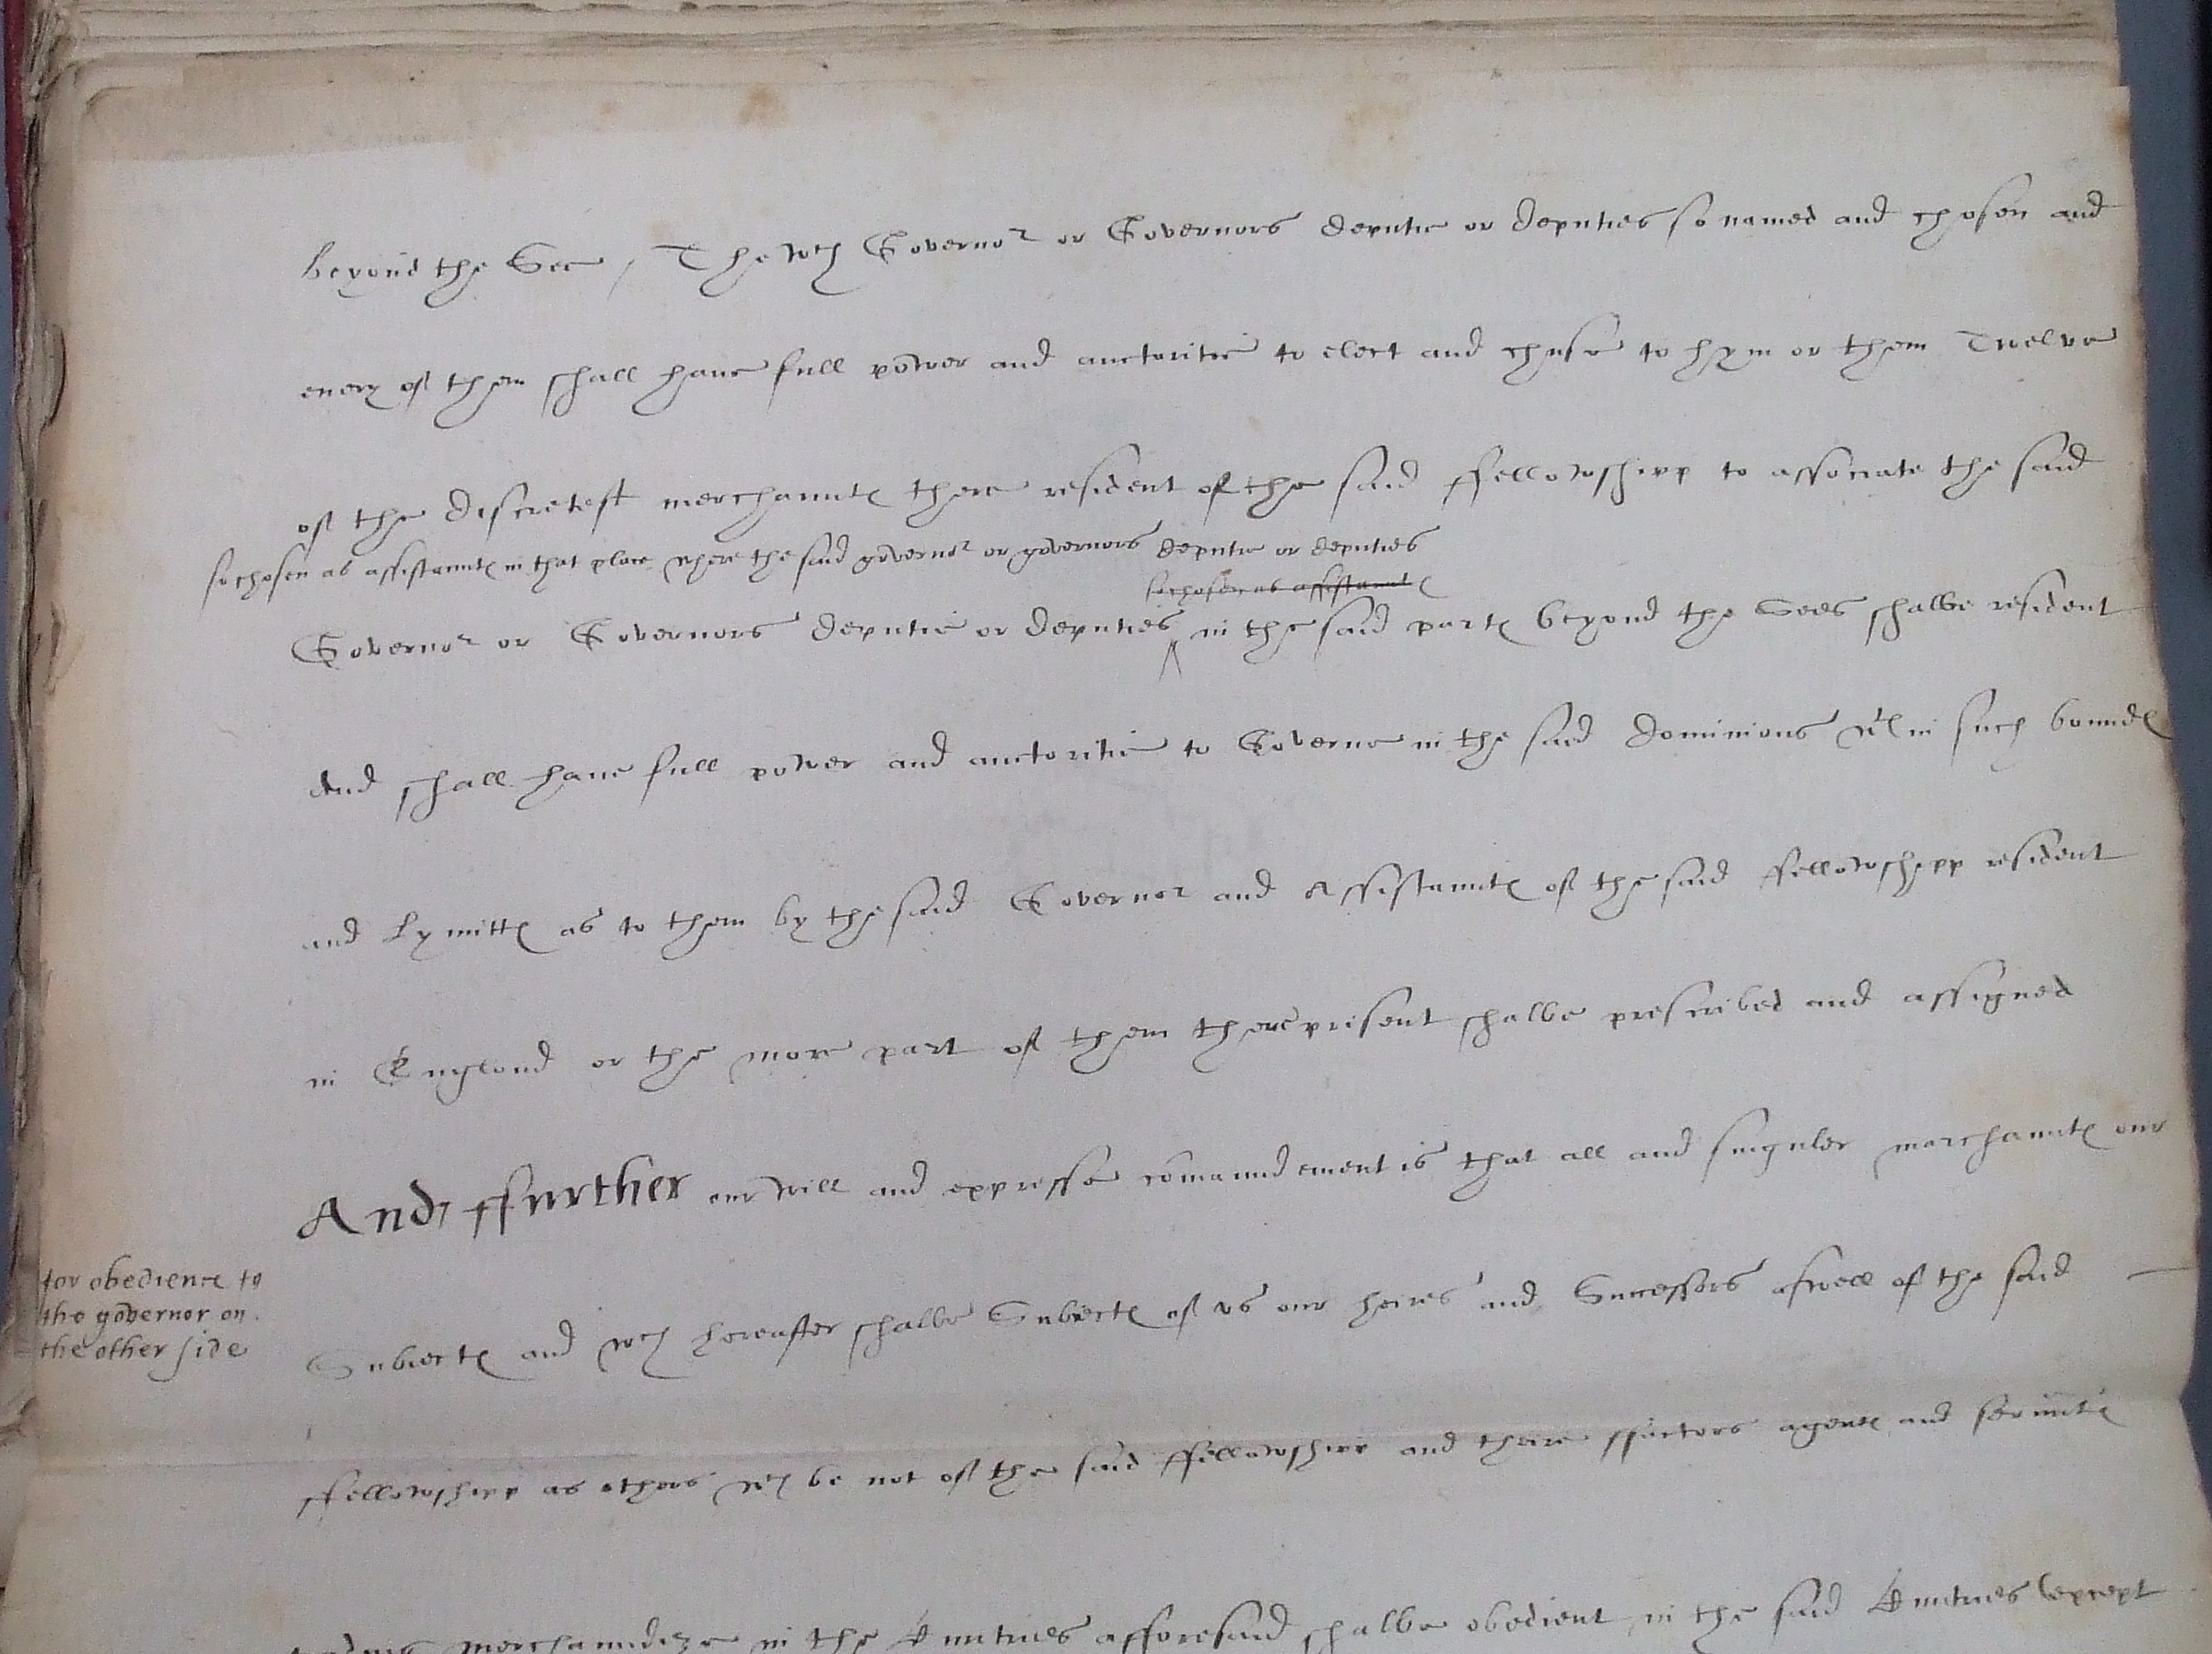 beyond the See / The wch Governor or Governors deputie or deputies so named and chosen and
euery of them shall haue full power and auctoritie to elect and chuse to hym or them Twelve
of the discretest merchauntes there resident of the said ffellowshipp to associate the said
so chosen as assistauntes in that place where the said governor or governors deputie or deputies
so chosen as assistauntes
Governor or Governors deputie or deputies ^ in the said partes beyond the Sees shalbe resident
And shall haue full power and auctoritie to Governe in the said dominions in such boundes
and Lymittes as to them by the said Governor and Assistauntes of the said ffellowshipp resident
in England or the more part of them there present shalbe prescribed and assigned
And ffurther our will and expresse comaundement is that all and singuler marchauntes our
Subiectes and wch hereafter shalbe Subiectes of vs our heires and Successors aswell of the said
for obedience to
the governor on
the other side
ffellowshipp as others wch be not of the said ffellowshipp and their ffactors agentes and seruntes
merchaundize in the Cuntries afforesaid shalbe obedient in the said Cuntries (except